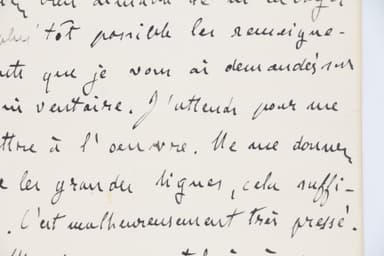 bien
plus tôt possible les renseigne-
que je vous ai demandés sur
inventaire. J'attends pour me
ttre à l'oeuvre. Ne me donnez
e les grandes lignes, cela suffi-
. C'est malheureusement très pressé.